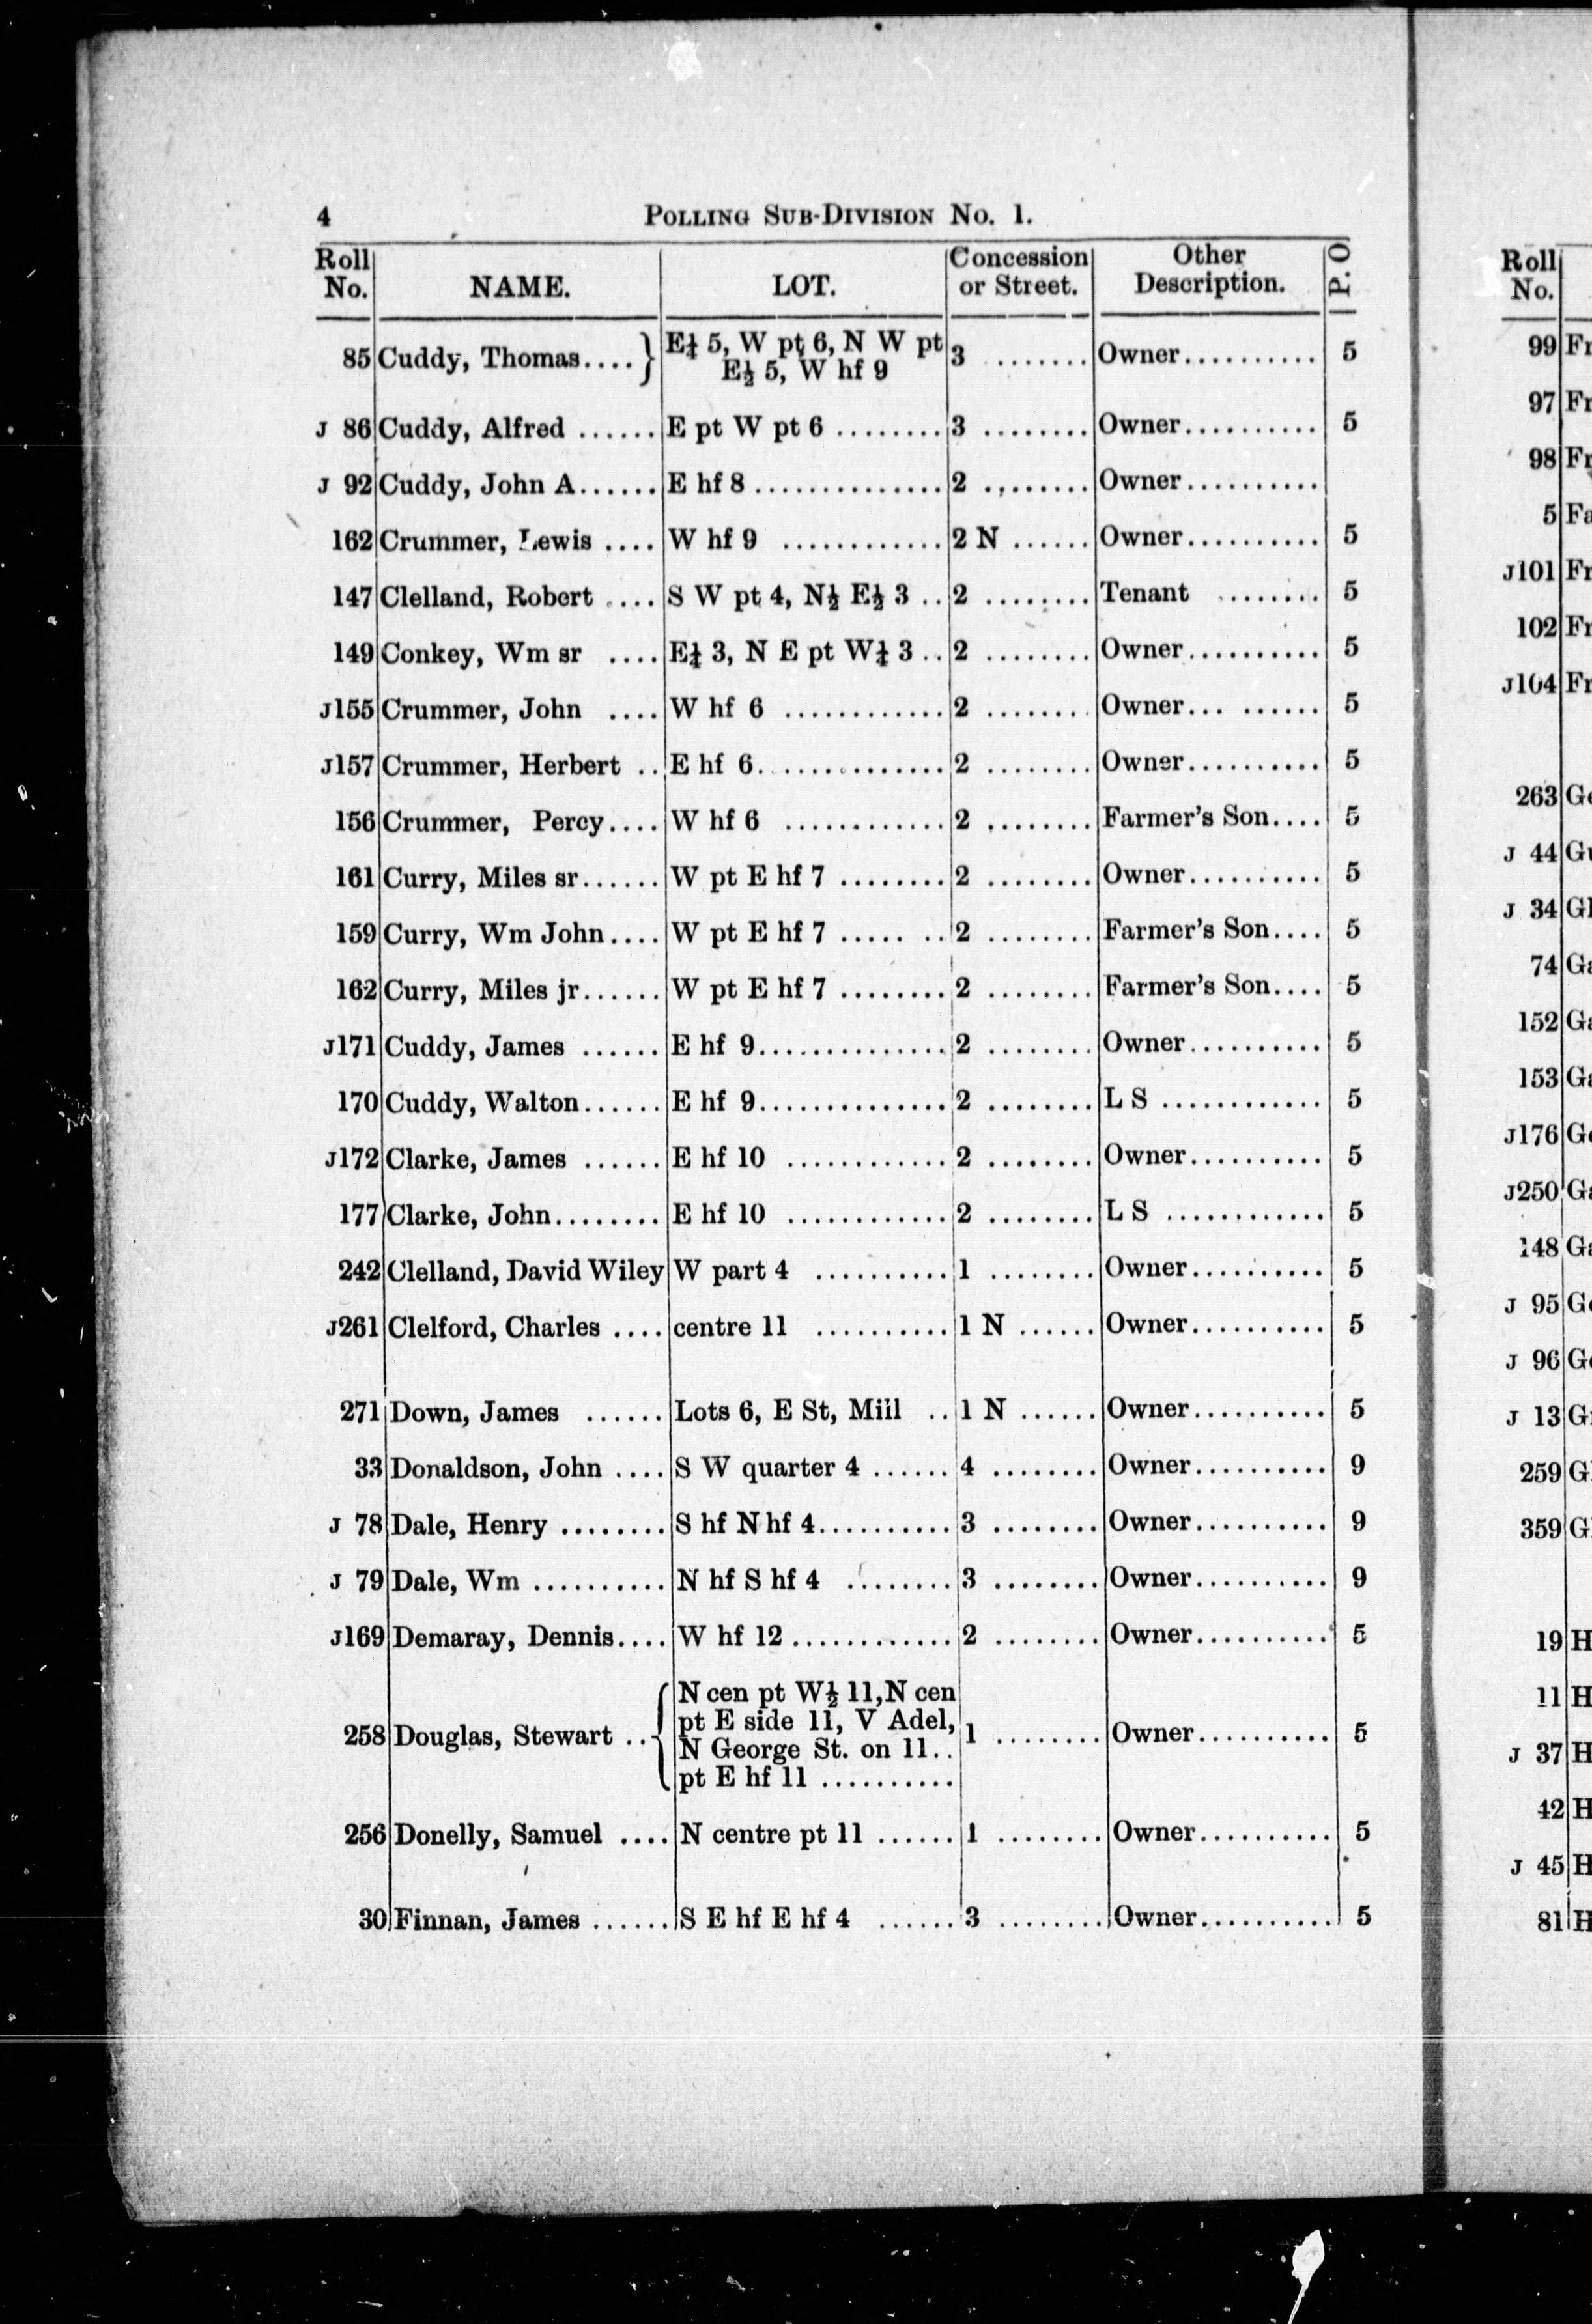 4 POLLING SUB-DIVISION No. 1.
Roll No. NAME. LOT. Concession or Street. Other Description. P. O
85 Cuddy, Thomas.... } E¼ 5, W pt 6, N W pt 3 ....... Owner.......... 5
E½ 5, W hf 9
J 86 Cuddy, Alfred ...... E pt W pt 6 ........ 3 ........ Owner.......... 5
J 92 Cuddy, John A...... E hf 8.............. 2 ........ Owner..........
162 Crummer, Lewis .... W hf 9 ............ 2 N ...... Owner.......... 5
147 Clelland, Robert .... S W pt 4, N½ E½ 3 .. 2 ........ Tenant ........ 5
149 Conkey, Wm sr .... E¼ 3, N E pt W¼ 3 .. 2 ........ Owner.......... 5
J155 Crummer, John .... W hf 6 ............ 2 ........ Owner... ...... 5
J157 Crummer, Herbert .. E hf 6.............. 2 ........ Owner.......... 5
156 Crummer, Percy.... W hf 6 ............ 2 ........ Farmer's Son.... 5
161 Curry, Miles sr...... W pt E hf 7 ........ 2 ........ Owner.......... 5
159 Curry, Wm John.... W pt E hf 7 ..... .. 2 ........ Farmer's Son.... 5
162 Curry, Miles jr...... W pt E hf 7 ........ 2 ........ Farmer's Son.... 5
J171 Cuddy, James ...... E hf 9.............. 2 ........ Owner.......... 5
170 Cuddy, Walton...... E hf 9.............. 2 ........ L S ............ 5
J172 Clarke, James ...... E hf 10 ............ 2 ........ Owner.......... 5
177 Clarke, John........ E hf 10 ............ 2 ........ L S ............ 5
242 Clelland, David Wiley W part 4 .......... 1 ........ Owner.......... 5
J261 Clelford, Charles .... centre 11 .......... 1 N ...... Owner.......... 5
271 Down, James ...... Lots 6, E St, Mill .. 1 N ...... Owner.......... 5
33 Donaldson, John .... S W quarter 4 ...... 4 ........ Owner.......... 9
J 78 Dale, Henry ........ S hf N hf 4.......... 3 ........ Owner.......... 9
J 79 Dale, Wm .......... N hf S hf 4 ........ 3 ........ Owner.......... 9
J169 Demaray, Dennis.... W hf 12............ 2 ........ Owner.......... 5
N cen pt W½ 11, N cen
pt E side 11, V Adel,
258 Douglas, Stewart .. { N George St. on 11.. 1 ........ Owner.......... 5
pt E hf 11 ..........
256 Donelly, Samuel .... N centre pt 11 ...... 1 ........ Owner.......... 5
30 Finnan, James ...... S E hf E hf 4 ...... 3 ........ Owner.......... 5
Roll No.
99 Fr
97 Fr
98 Fr
5 Fa
J101 Fr
102 Fr
J104 Fr
263 Ge
J 44 Gu
J 34 Gl
74 Ga
152 Ga
153 Ga
J176 Ge
J250 Ga
148 Ga
J 95 Ge
J 96 Ge
J 13 G
259 G
359 G
19 H
11 H
J 37 H
42 H
J 45 H
81 H